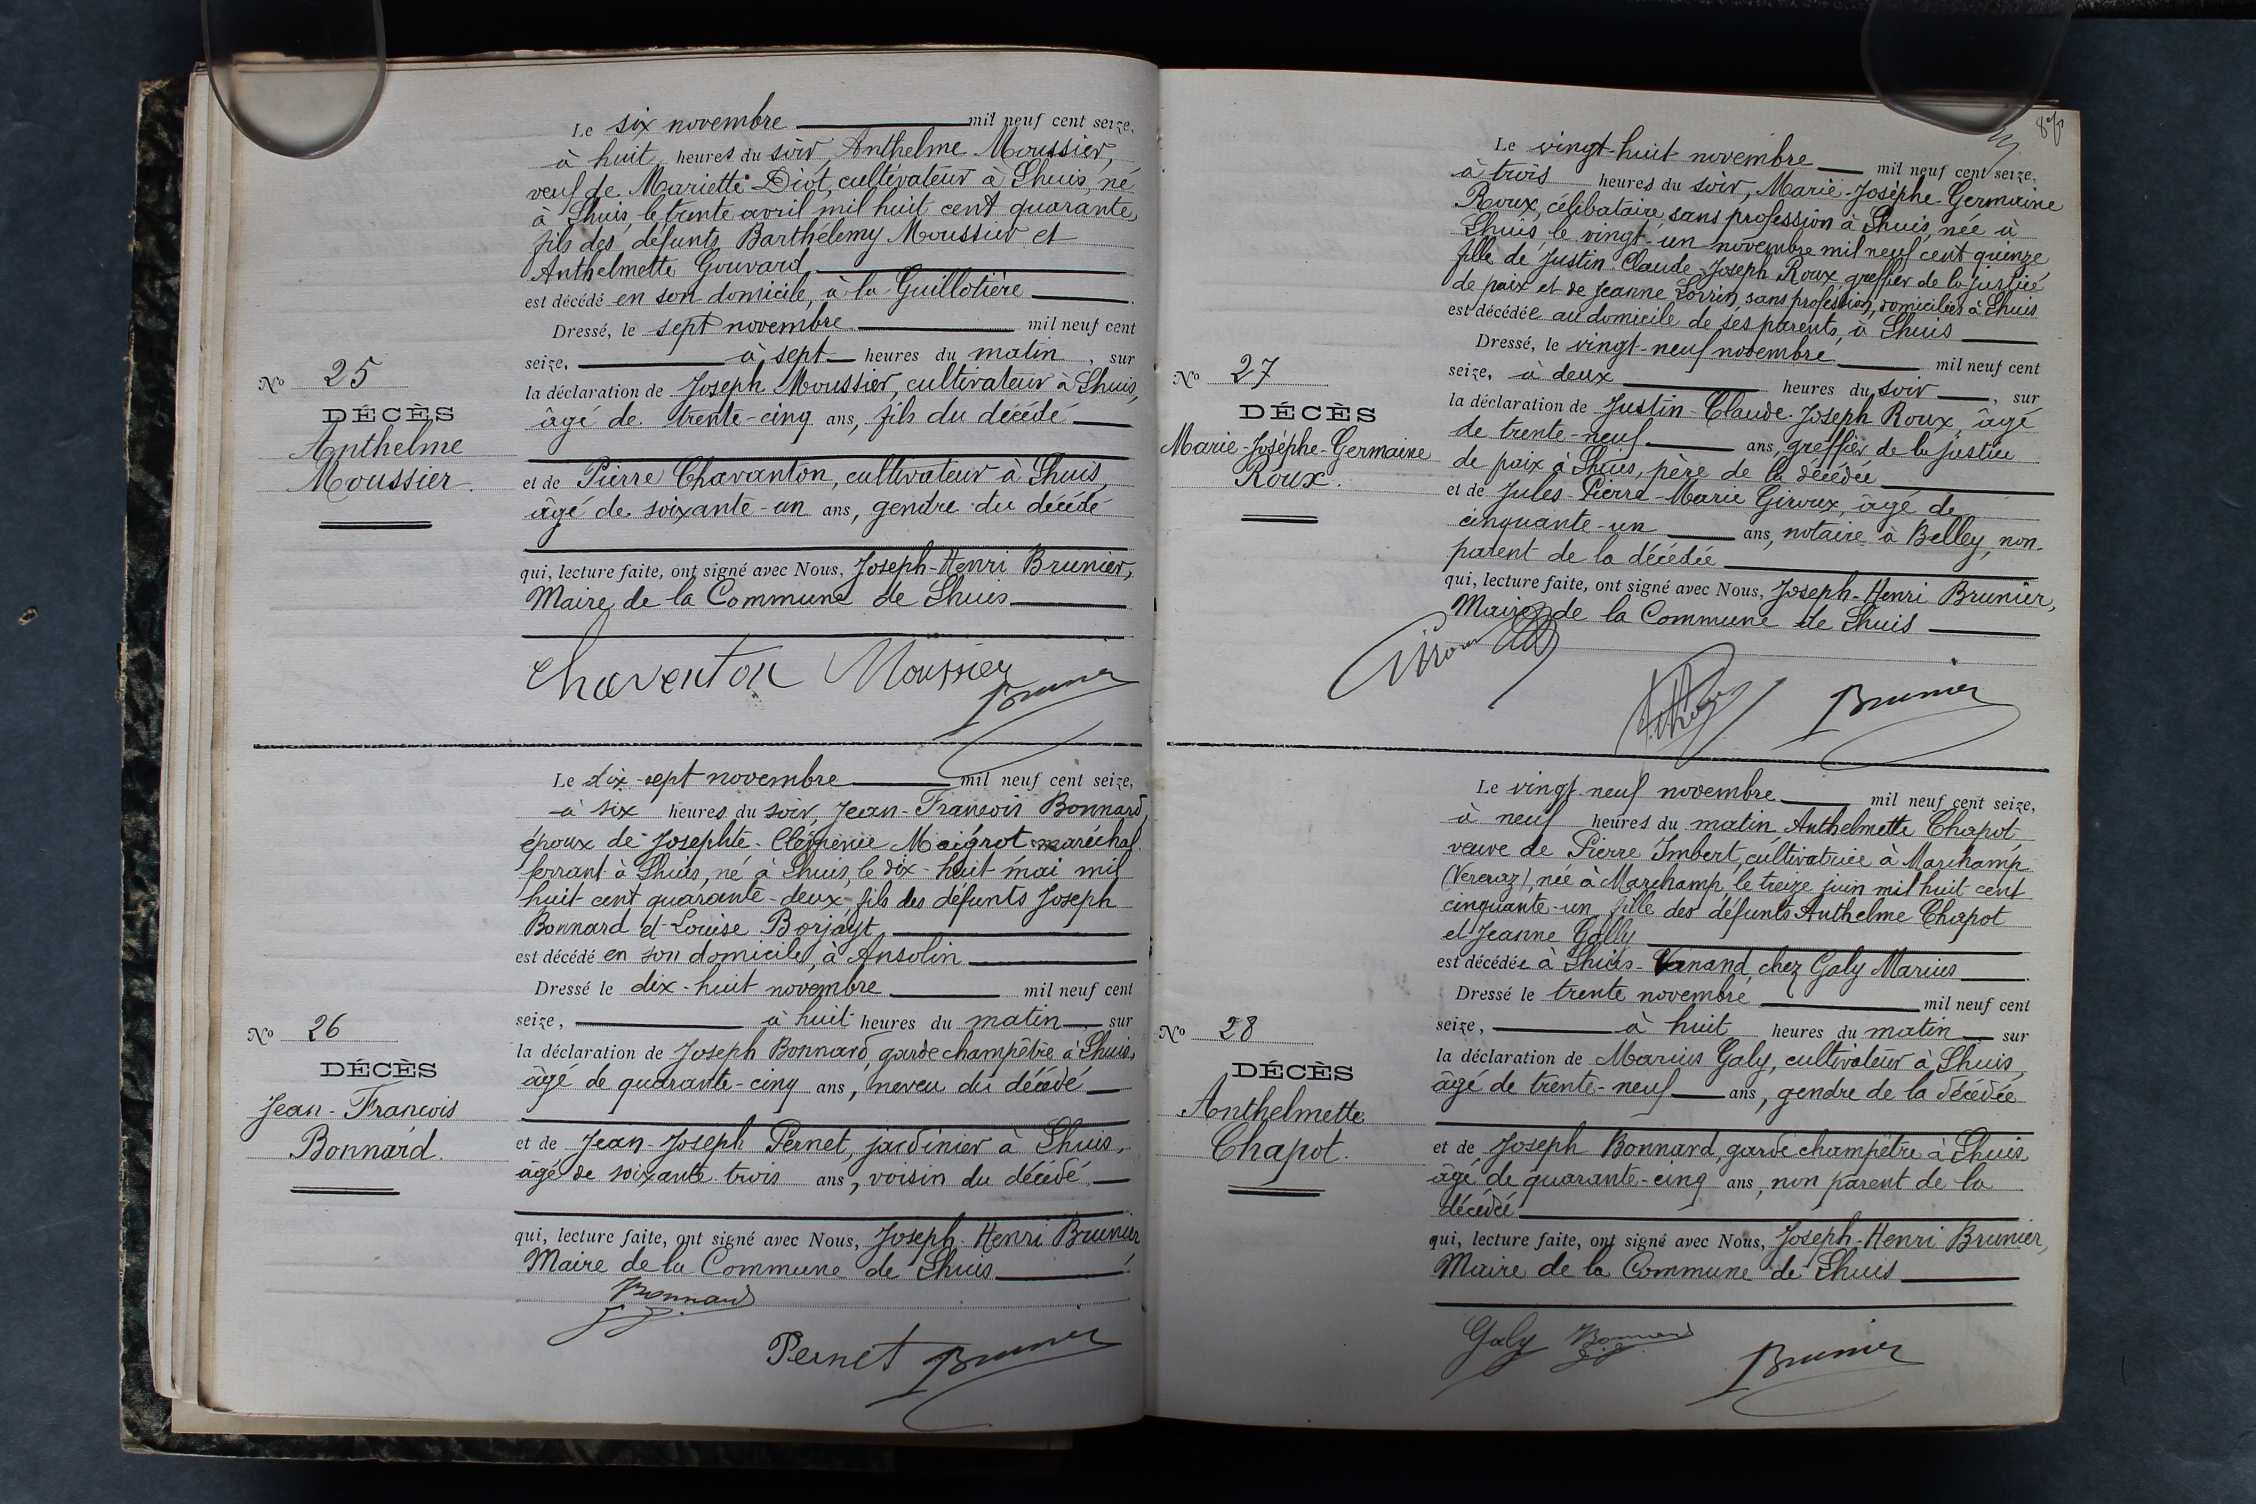 Le six novembre mil neuf cent seize,
à huit heures du soir, Anthelme Moussier,
veuf de Mariette Diot, cultivateur à Lhuis, né
à Lhuis, le trente avril mil huit cent quarante,
fils des défunts Barthélemy Moussier et
Anthelmette Gouvard
est décédé en son domicile, à la Guillotière
Dressé, le sept novembre mil neuf cent
seize, à sept heures du matin, sur
la déclaration de Joseph Moussier, cultivateur à Lhuis,
âgé de trente-cinq ans, fils du décédé
et de Pierre Chavanton, cultivateur à Lhuis,
âgé de soixante-un ans, gendre du décédé
qui, lecture faite, ont signé avec Nous, Joseph-Henri Brunier,
Maire de la Commune de Lhuis
Chaventon Moussier
Brunier
No 25
DÉCÈS
Anthelme
Moussier.
Le dix-sept novembre mil neuf cent seize,
à six heures du soir, Jean-François Bonnard,
époux de Josephte-Clémence Maigrot maréchal
ferrant à Lhuis, né à Lhuis, le dix-huit mai mil
huit cent quarante-deux, fils des défunts Joseph
Bonnard et Louise Borjayt
est décédé en son domicile, à Ansolin
Dressé le dix-huit novembre mil neuf cent
seize, à huit heures du matin sur
la déclaration de Joseph Bonnard, garde champêtre à Lhuis,
âgé de quarante-cinq ans, neveu du décédé
et de Jean-Joseph Pernet, jardinier à Lhuis,
âgé de soixante trois ans, voisin du décédé
qui, lecture faite, ont signé avec Nous, Joseph-Henri Brunier
Maire de la Commune de Lhuis
Bonnard
Pernet Brunier
No 26
DÉCÈS
Jean-François
Bonnard.
Le vingt-huit novembre mil neuf cent seize,
à trois heures du soir, Marie-Josèphe-Germaine
Roux, célibataire, sans profession à Lhuis, née à
Lhuis le vingt-un novembre mil neuf cent quinze
fille de Justin-Claude-Joseph Roux, greffier de la justice
de paix et de Jeanne Lorrin, sans profession, domiciliés à Lhuis
est décédée au domicile de ses parents, à Lhuis
Dressé, le vingt-neuf novembre mil neuf cent
seize, à deux heures du soir, sur
la déclaration de Justin-Claude-Joseph Roux, âgé
de trente-neuf ans, greffier de la justice
de paix à Lhuis, père de la décédée
et de Jules-Pierre-Marie Giroux, âgé de
cinquante-un ans, notaire à Belley, non
parent de la décédée
qui, lecture faite, ont signé avec Nous, Joseph-Henri Brunier,
Maire de la Commune de Lhuis
Giroux
Brunier
No 27
DÉCÈS
Marie-Josèphe-Germaine
Roux.
Le vingt neuf novembre mil neuf cent seize,
à neuf heures du matin Anthelmette Chapot
veuve de Pierre Imbert, cultivatrice à Marchamp
née à Marchamp, le treize juin mil huit cent
cinquante-un fille des défunts Anthelme Chapot
et Jeanne Golly
est décédée à Lhuis-Venand, chez Galy Marius
Dressé le trente novembre mil neuf cent
seize, à huit heures du matin sur
la déclaration de Marius Galy, cultivateur à Lhuis,
âgé de trente-neuf ans, gendre de la décédée
et de Joseph Bonnard, garde champêtre à Lhuis
âgé de quarante-cinq ans, non parent de la
décédée
qui, lecture faite, ont signé avec Nous, Joseph-Henri Brunier,
Maire de la Commune de Lhuis
Galy Bonnard
Brunier
No 28
DÉCÈS
Anthelmette
Chapot.